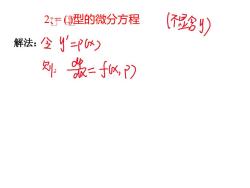 2、型的微分方程 (不显含y)
解法: 令 y'=p(x)
则: dp/dx = f(x, p)